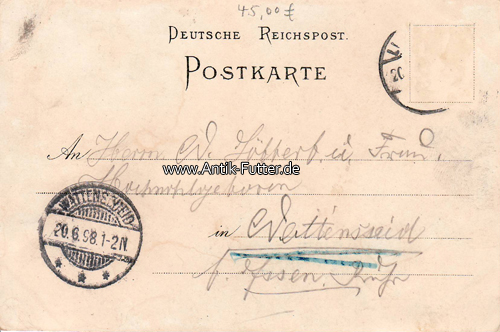 45,00 €
DEUTSCHE REICHSPOST.
POSTKARTE
20
An Herrn W. u. Frau
www.Antik-Futter.de
Hochwohlgeboren
WATTENSCHEID
20.6.98.1-2N
in Wattenscheid
b. Essen Ruhr